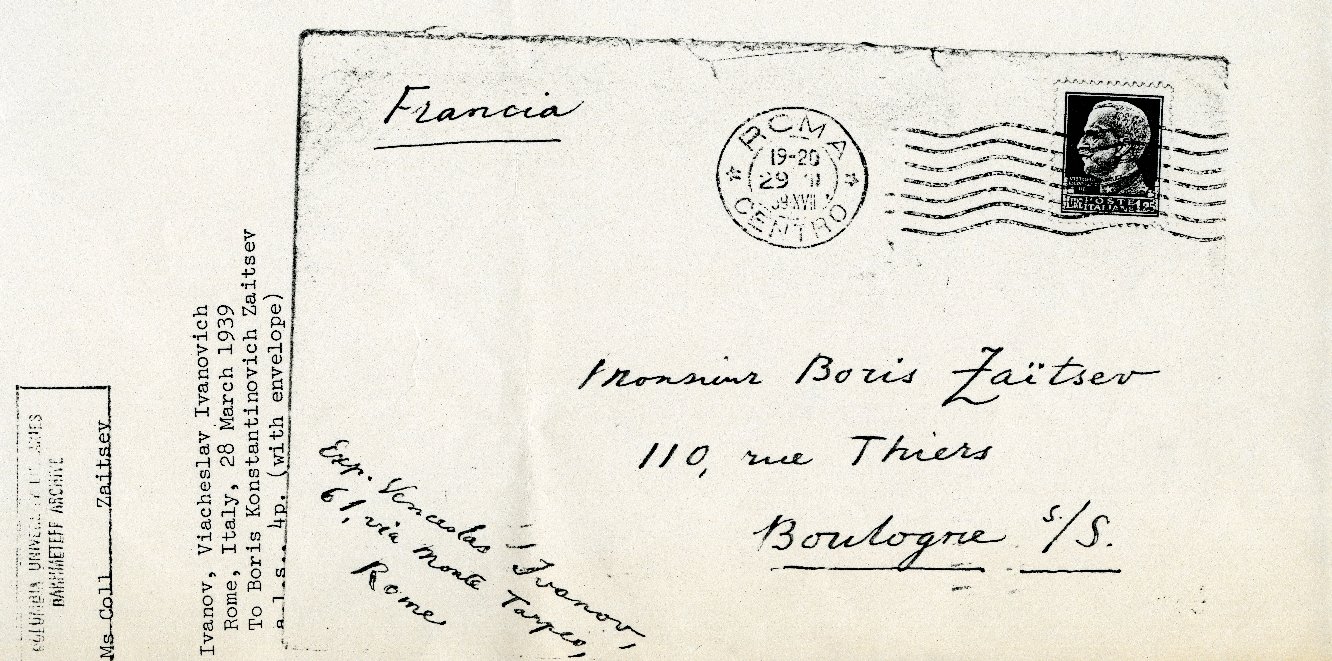 Francia
ROMA
19-20
29 III
39 XVII
CENTRO
POSTE
ITALIANE
Monsieur Boris Zaïtsev
110, rue Thiers
Boulogne s./S.
Exp. Venceslas Ivanov,
61, via Monte Tarpeo,
Rome
Ivanov, Viacheslav Ivanovich
Rome, Italy, 28 March 1939
To Boris Konstantinovich Zaitsev
a.l.s., 4p. (with envelope)
COLUMBIA UNIVERSITY LIBRARIES
BAKHMETEFF ARCHIVE
Ms Coll Zaitsev